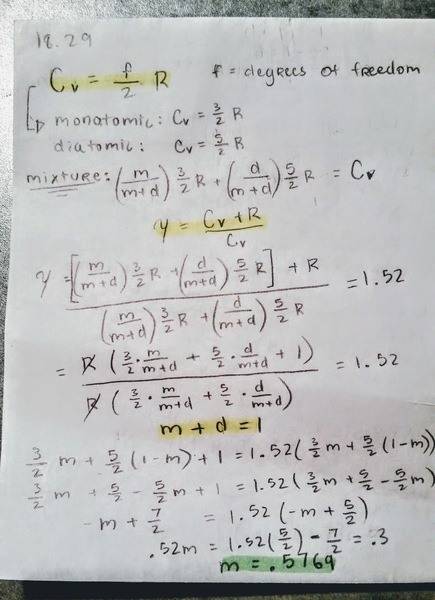 18.29
Cv = f/2 R f = degrees of freedom
monatomic: Cv = 3/2 R
diatomic: Cv = 5/2 R
mixture: (m/(m+d)) 3/2 R + (d/(m+d)) 5/2 R = Cv
γ = (Cv + R)/Cv
γ = [(m/(m+d)) 3/2 R + (d/(m+d)) 5/2 R] + R / (m/(m+d)) 3/2 R + (d/(m+d)) 5/2 R = 1.52
= R (3/2 · m/(m+d) + 5/2 · d/(m+d) + 1) / R (3/2 · m/(m+d) + 5/2 · d/(m+d)) = 1.52
m + d = 1
3/2 m + 5/2 (1-m) + 1 = 1.52(3/2 m + 5/2 (1-m))
3/2 m + 5/2 - 5/2 m + 1 = 1.52(3/2 m + 5/2 - 5/2 m)
-m + 7/2 = 1.52 (-m + 5/2)
.52m = 1.52(5/2) - 7/2 = .3
m = .5769